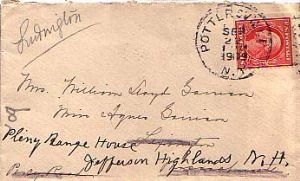 Ludington
POTTERSV
SEP
2
N.Y.
Mrs. William Lloyd Garrison
Miss Agnes Garrison
Pliny Range House
Jefferson Highlands, N.H.